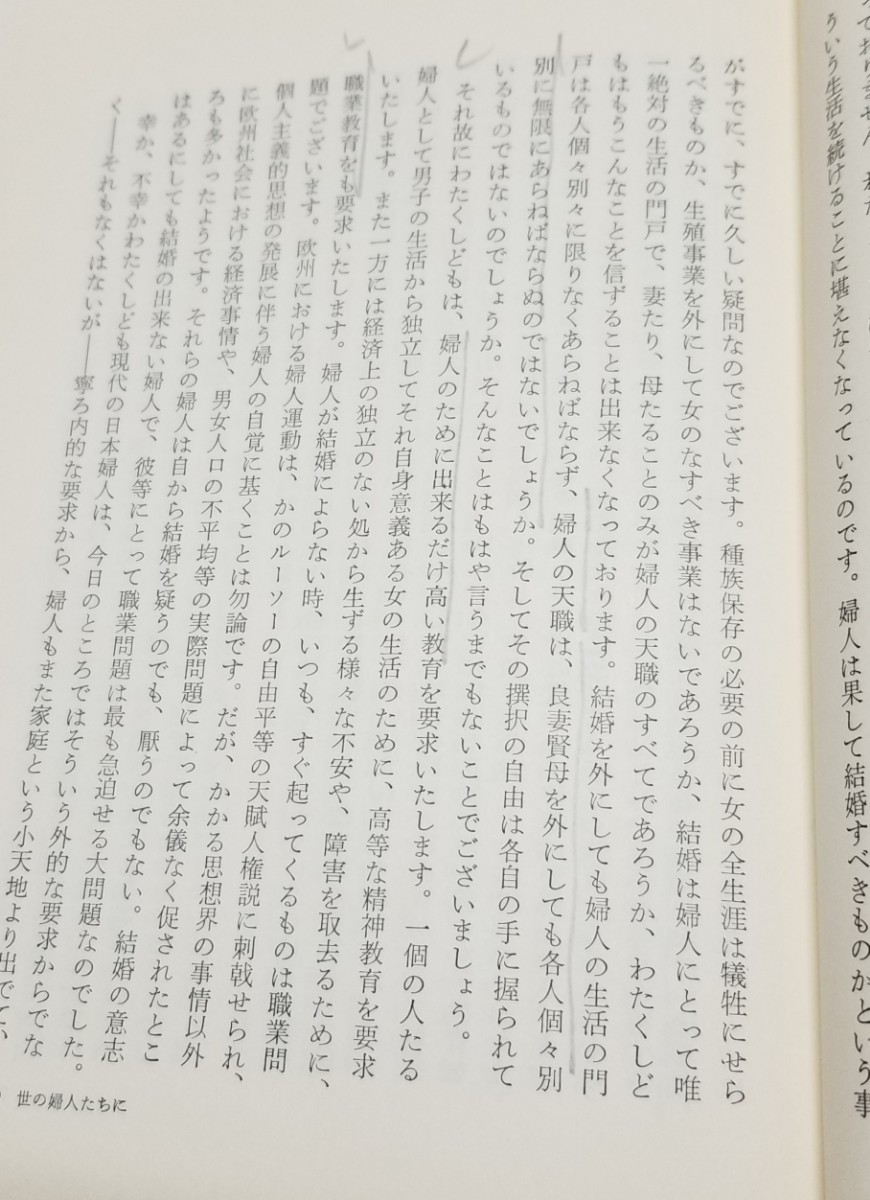 ういう生活を続けることに堪えなくなっているのです。婦人は果して結婚すべきものかという事
がすでに、すでに久しい疑問なのでございます。種族保存の必要の前に女の全生涯は犠牲にせら
るべきものか、生殖事業を外にして女のなすべき事業はないであろうか、結婚は婦人にとって唯
一絶対の生活の門戸で、妻たり、母たることのみが婦人の天職のすべてであろうか、わたくしど
もはもうこんなことを信ずることは出来なくなっております。結婚を外にしても婦人の生活の門
戸は各人個々別々に限りなくあらねばならず、婦人の天職は、良妻賢母を外にしても各人個々別
別に無限にあらねばならぬのではないでしょうか。そしてその撰択の自由は各自の手に握られて
いるものではないのでしょうか。そんなことはもはや言うまでもないことでございましょう。
それ故にわたくしどもは、婦人のために出来るだけ高い教育を要求いたします。一個の人たる
婦人として男子の生活から独立してそれ自身意義ある女の生活のために、高等な精神教育を要求
いたします。また一方には経済上の独立のない処から生ずる様々な不安や、障害を取去るために、
職業教育をも要求いたします。婦人が結婚によらない時、いつも、すぐ起ってくるものは職業問
題でございます。欧州における婦人運動は、かのルーソーの自由平等の天賦人権説に刺戟せられ、
個人主義的思想の発展に伴う婦人の自覚に基くことは勿論です。だが、かかる思想界の事情以外
に欧州社会における経済事情や、男女人口の不平均等の実際問題によって余儀なく促されたとこ
ろも多かったようです。それらの婦人は自から結婚を疑うのでも、厭うのでもない。結婚の意志
はあるにしても結婚の出来ない婦人で、彼等にとって職業問題は最も急迫せる大問題なのでした。
幸か、不幸かわたくしども現代の日本婦人は、今日のところではそういう外的な要求からでな
く――それもなくはないが――寧ろ内的な要求から、婦人もまた家庭という小天地より出でて、
世の婦人たちに